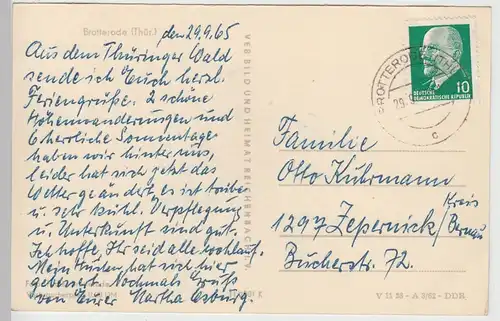 Brotterode (Thür.)
den 29.9.65
Aus dem Thüringer Wald
sende ich Euch herzl.
Feriengrüße. 2 schöne
Höhenwanderungen und
6 herrliche Sonnentage
haben wir hinter uns,
leider hat sich jetzt das
Wetter geändert, es ist trübe
u. sehr kühl. Verpflegung
u. Unterkunft sind gut.
Ich hoffe, Ihr seid alle wohlauf.
Mein Husten hat sich hier
gebessert. Nochmals Gruß
von Eurer Martha
VERBILD UND HEIMAT REICHENBACH
BROTTERODE
29.
c
DEUTSCHE
DEMOKRATISCHE REPUBLIK
10
Familie
Otto Kuhrmann
Kreis
1297 Zepernick/Bernau
Bucherstr. 72.
V 11 28 - A 3/62 - DDR